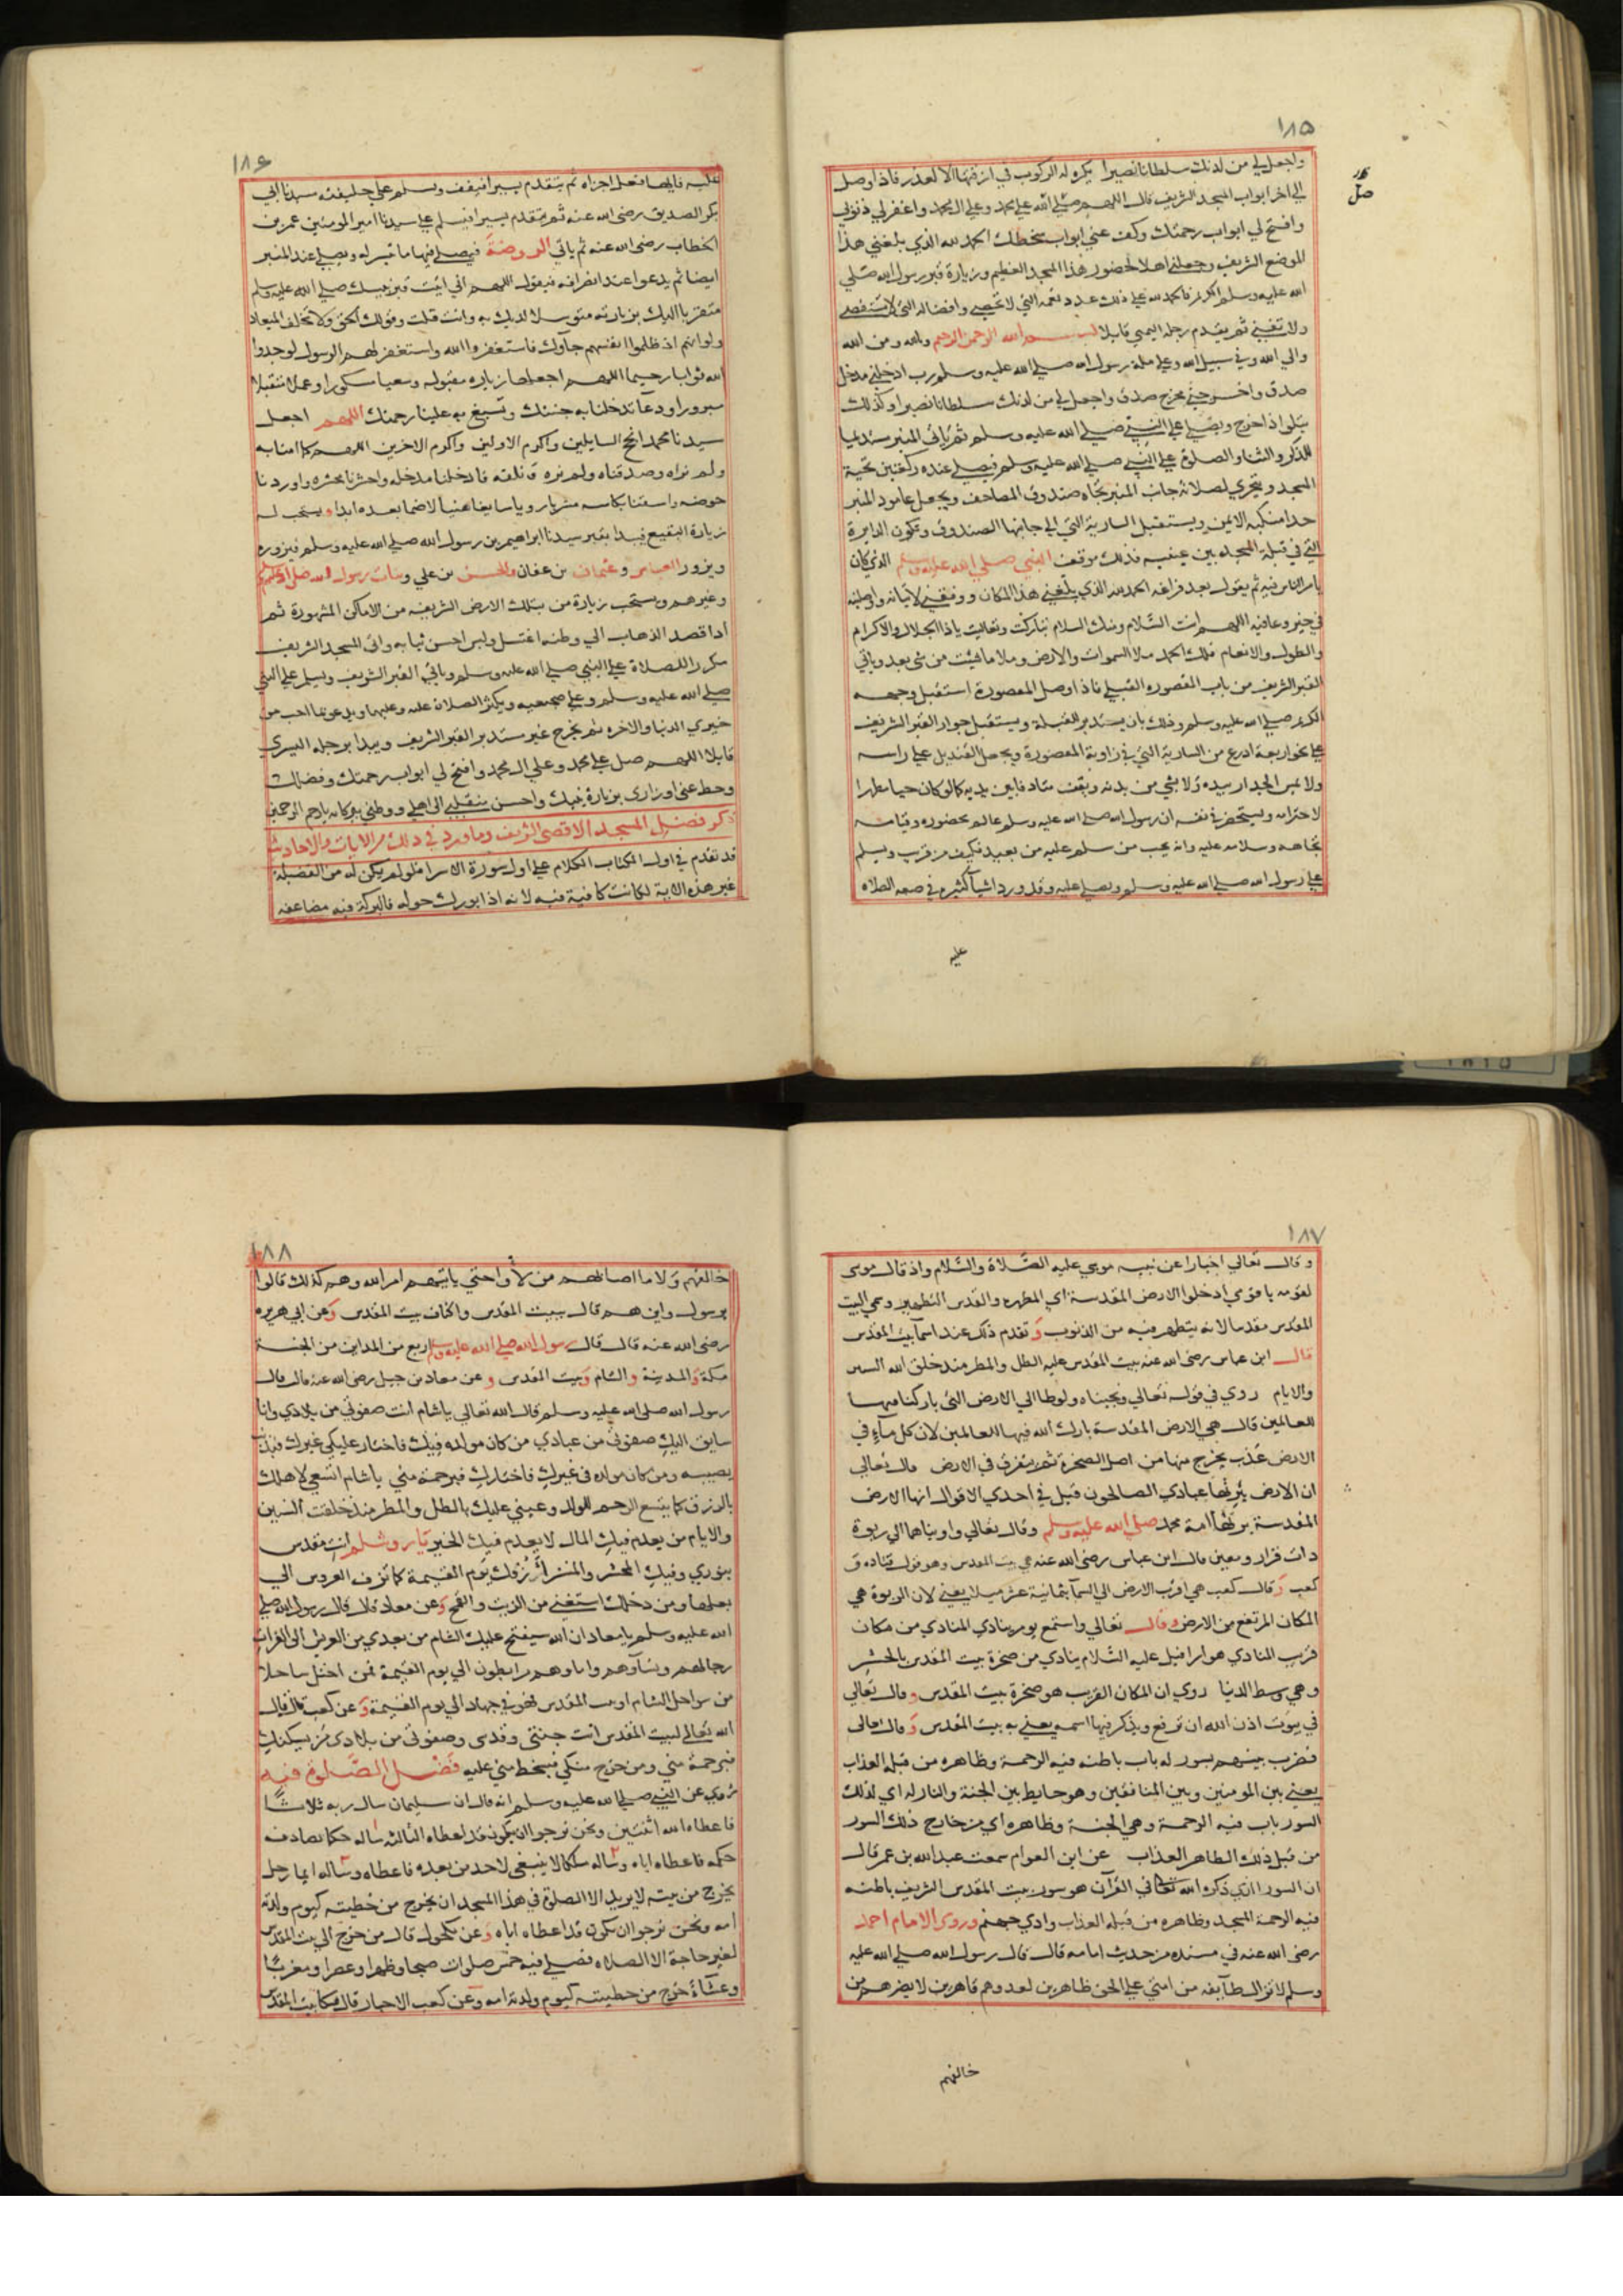 ١٨٥
واجعل لي من لدنك سلطانا نصيرا يكره له الركوب في ازقتها الا لعذر فاذا وصل
صل
الي اخر ابواب المسجد الشريف قال اللهم صلي الله علي محمد وعلي ال محمد واغفر لي ذنوبي
وافتح لي ابواب رحمتك وكف عني ابواب سخطك الحمد لله الذي بلغني هذا
الموضع الشريف وجعلني اهلا لحضور هذا المسجد العظيم وزيارة قبر رسول الله صلي
الله عليه وسلم فالحمد لله علي ذلك عدد نعمه التي لا تحصي وافضاله التي لا تستقصي
ولا تفني ثم يقدم رجله اليمني قايلا بسم الله الرحمن الرحيم بالله ومن الله
والي الله وفي سبيل الله وعلي ملة رسول الله صلي الله عليه وسلم رب ادخلني مدخل
صدق واخرجني مخرج صدق واجعل لي من لدنك سلطانا نصيرا وكذلك
يتلوا اذا خرج ويصلي علي النبي صلي الله عليه وسلم ثم ياتي المنبر مستديما
للذكر والثنا والصلوة علي النبي صلي الله عليه وسلم فيصلي عنده ركعتين تحية
المسجد ويتحري لصلاته جانب المنبر تجاه صندوق المصاحف ويجعل عامود المنبر
حذا منكبه الايمن ويستقبل السارية التي الي جانبها الصندوق وتكون الدايرة
التي في قبلة المسجد بين عينيه فذلك موقف النبي صلي الله عليه وسلم الذي كان
يام الناس فيه ثم يقول بعد فراغه الحمد لله الذي بلغني هذا المكان ووفقني لاتيانه واوصلنيه
في خير وعافيه اللهم انت السلام ومنك السلام تباركت وتعاليت ياذا الجلال والاكرام
والطول والانعام فلك الحمد ملا السموات والارض وملا ما شيت من شي بعد وياتي
القبر الشريف من باب المقصوره القبلي فاذا وصل المقصورة استقبل وجهه
الكريم صلي الله عليه وسلم وذلك بان يستدبر القبلة ويستقبل جوار القبر الشريف
علي نحو اربعة ادرع من السارية التي في زاوية المقصورة ويجعل القنديل علي راسه
ولا يمس الجدار بيده ولا بشي من بدنه ويقف متادبا بين يديه كما لو كان حيا مطهرا
لاحترامه ويستحضر في نفسه ان رسول الله صلي الله عليه وسلم عالم بحضوره وقيامه
تجاهه وسلامه عليه وانه يجيب من سلم عليه من بعيد فكيف من قرب ويسلم
علي رسول الله صلي الله عليه وسلم ويصلي عليه وقد ورد اشيا كثيرة في صفه الصلاه
عليه
١٨٦
عليه فايها فعل اجزاه ثم يتقدم يسيرا فيقف ويسلم علي خليفته سيدنا ابي
بكر الصديق رضى الله عنه ثم يتقدم يسيرا فيسلم علي سيدنا امير المومنين عمر بن
الخطاب رضى الله عنه ثم ياتي الروضة فيصلي فيها ما تيسر له ويصلي عند المنبر
ايضا ثم يدعوا عند انصرافه فيقول اللهم اني اتيت قبر نبيك صلي الله عليه وسلم
متقربا اليك بزيارته متوسلا لديك به وانت قلت وقولك الحق ولا تخلف الميعاد
ولو انهم اذ ظلموا انفسهم جاوك فاستغفروا الله واستغفر لهم الرسول لوجدوا
الله توابا رحيما اللهم اجعلها زيارة مقبوله وسعيا مشكورا وعملا متقبلا
مبرورا ودعا تدخلنا به جنتك وتسبغ به علينا رحمتك اللهم اجعل
سيدنا محمد انجح السايلين واكرم الاولين واكرم الاخرين اللهم كما امنا به
ولم نراه وصدقناه ولم نره فادخلنا مدخله واحشرنا محشره واوردنا
حوضه واسقنا بكاسه مشربا رويا سايغا هنيا لا ضما بعده ابدا ويستحب له
زيارة البقيع فيبدا بقبر سيدنا ابراهيم بن رسول الله صلي الله عليه وسلم فيزوره
ويزور العباس وعثمان بن عفان والحسن بن علي وبنات رسول الله صلي الله عليه وسلم
وغيرهم ويستحب زيارة من بتلك الارض الشريفه من الاماكن المشهورة ثم
اذا قصد الذهاب الي وطنه اغتسل ولبس احسن ثيابه واتى المسجد الشريف
مكررا للصلاة علي النبي صلي الله عليه وسلم وياتي القبر الشريف ويسلم علي النبي
صلي الله عليه وسلم وعلي ضجيعيه ويكثر الصلاة عليه وعليهما ويدعو بما احب من
خيري الدنيا والاخره ثم يخرج غير مستدبر القبر الشريف ويبدا برجله اليسرى
قايلا اللهم صل علي محمد وعلي ال محمد وافتح لي ابواب رحمتك وفضلك
وحط عني اوزاري بزيارة نبيك واحسن منقلبي الى اهلي ووطني ببركاته ياارحم الراحمين
ذكر فضل المسجد الاقصى الشريف وما ورد في ذلك من الايات والاحاديث
قد تقدم في اول الكتاب الكلام علي اول سورة الاسرا فلو لم يكن له من الفضيلة
غير هذه الاية لكانت كافية فيه لانه اذا بورك حوله فالبركة فيه مضاعفه
١٨٧
وقال تعالي اخبارا عن نبيه موسي عليه الصلاة والسلام واذ قال موسى
لقومه ياقومي ادخلوا الارض المقدسة اي المطهره والقدس التطهير وسمي البيت
المقدس مقدسا لانه يتطهر فيه من الذنوب وتقدم ذلك عند اسمآ بيت المقدس
قال ابن عباس رضى الله عنه بيت المقدس عليه الطل والمطر منذ خلق الله السنين
والايام روي في قوله تعالي ونجيناه ولوطا الي الارض التي باركنا فيها
للعالمين قال هي الارض المقدسة بارك الله فيها للعالمين لان كل مآءٍ في
الارض عذب يخرج منها من اصل الصخرة ثم يتفرق في الارض قال تعالي
ان الارض يرثها عبادي الصالحون قيل في احدي الاقوال انها الارض
المقدسة يرثها امة محمد صلي الله عليه وسلم وقال تعالي واويناهما الي ربوة
ذات قرار ومعين قال ابن عباس رضى الله عنه هي بيت المقدس وهو قول قتاده و
كعب وقال كعب هي اقرب الارض الي السمآ بثمانية عشر ميلا يعني لان الربوة هي
المكان المرتفع من الارض وقال تعالي واستمع يوم ينادي المنادي من مكان
قريب المنادي هو اسرافيل عليه السلام ينادي من صخرة بيت المقدس بالحشر
وهي وسط الدنيا روي ان المكان القريب هو صخرة بيت المقدس وقال تعالي
في بيوت اذن الله ان ترفع ويذكر فيها اسمه يعني به بيت المقدس وقال تعالى
فضرب بينهم بسور له باب باطنه فيه الرحمة وظاهره من قبله العذاب
يعني بين المومنين وبين المنافقين وهو حايط بين الجنة والنار له اي لذلك
السور باب فيه الرحمة وهي الجنة وظاهره اي من خارج ذلك السور
من قبل ذلك الظاهر العذاب عن ابن العوام سمعت عبد الله بن عمر قال
ان السور الذي ذكره الله تعالى في القرآن هو سور بيت المقدس الشريف باطنه
فيه الرحمة المسجد وظاهره من قبله العذاب وادي جهنم وروى الامام احمد
رضى الله عنه في مسنده من حديث امامه قال قال رسول الله صلي الله عليه
وسلم لا تزال طآيفه من امتي علي الحق ظاهرين لعدوهم قاهرين لا يضرهم من
خالفهم
١٨٨
خالفهم ولا ما اصابهم من لأوا حتي ياتيهم امر الله وهم كذلك قالوا
يرسول واين هم قال ببيت المقدس واكناف بيت المقدس وعن ابي هريره
رضى الله عنه قال قال رسول الله صلي الله عليه وسلم اربع من المداين من الجنة
مكة والمدينة والشام وبيت المقدس وعن معاذ بن جبل رضى الله عنه قال قال
رسول الله صلى الله عليه وسلم قال الله تعالي ياشام انت صفوتي من بلادي وانا
سايق اليك صفوتي من عبادي من كان مولده فيك فاختار عليكي غيرك فبذنب
يصيبه ومن كان مولده في غيرك فاختارك فبرحمة مني ياشام اتسعي لاهلك
بالرزق كما يتسع الرحم للولد وعيني عليك بالطل والمطر منذ خلقت السنين
والايام من يعدم فيك المال لا يعدم فيك الخير يا روشلم انت مقدس
بنوري وفيك المحشر والمنشر أزفك يوم القيمة كما تزف العروس الي
بعلها ومن دخلك استغني من الزيت والقمح وعن معاذ قال قال رسول الله صلي
الله عليه وسلم يامعاذ ان الله سيفتح عليك الشام من بعدي من العريش الى الفرات
رجالهم ونسآوهم واماوهم مرابطون الي يوم القيمة فمن احتل ساحلا
من سواحل الشام او بيت المقدس فهو في جهاد الي يوم القيمة وعن كعب قال قال
الله تعالي لبيت المقدس انت جنتي وقدسى وصفوتي من بلادى من سكنك
فبرحمة مني ومن خرج منكي فبسخط مني عليه فضل الصلوة فيه
روي عن النبي صلي الله عليه وسلم انه قال ان سليمان سال ربه ثلاثا
فاعطاه الله اثنتين ونحن نرجوا ان يكون قد اعطاه الثالثه ساله حكما يصادف
حكمه فاعطاه اياه وساله ملكا لا ينبغي لاحد من بعده فاعطاه وساله ايما رجل
يخرج من بيته لا يريد الا الصلوة في هذا المسجد ان يخرج من خطيته كيوم ولدته
امه ونحن نرجوا ان يكون قد اعطاه اياه وعن مكحول قال من خرج الي بيت المقدس
لغير حاجة الا الصلاه فصلي فيه خمس صلوات صبحا وظهرا وعصرا ومغربا
وعشآءً خرج من خطيته كيوم ولدته امه وعن كعب الاحبار قال شكا بيت المقدس